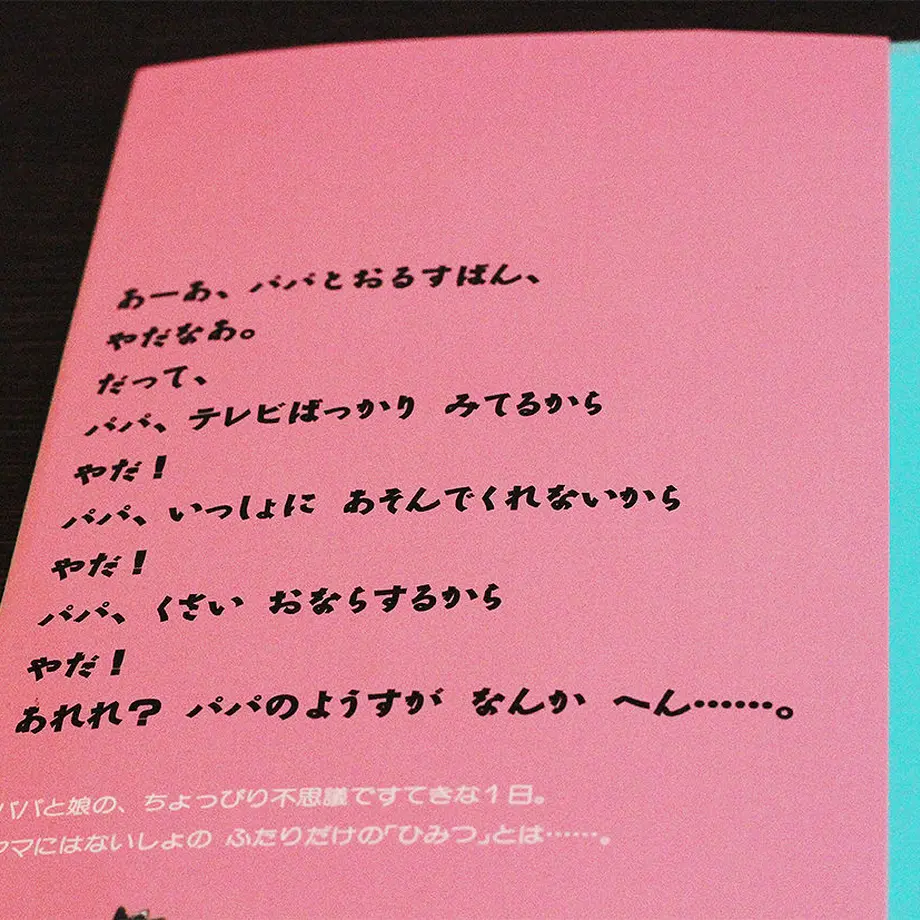 あーあ、パパとおるすばん、
やだなあ。
だって、
パパ、テレビばっかり みてるから
やだ！
パパ、いっしょに あそんでくれないから
やだ！
パパ、くさい おならするから
やだ！
あれれ？ パパのようすが なんか へん……。
パパと娘の、ちょっぴり不思議ですてきな1日。
ママにはないしょの ふたりだけの「ひみつ」とは……。